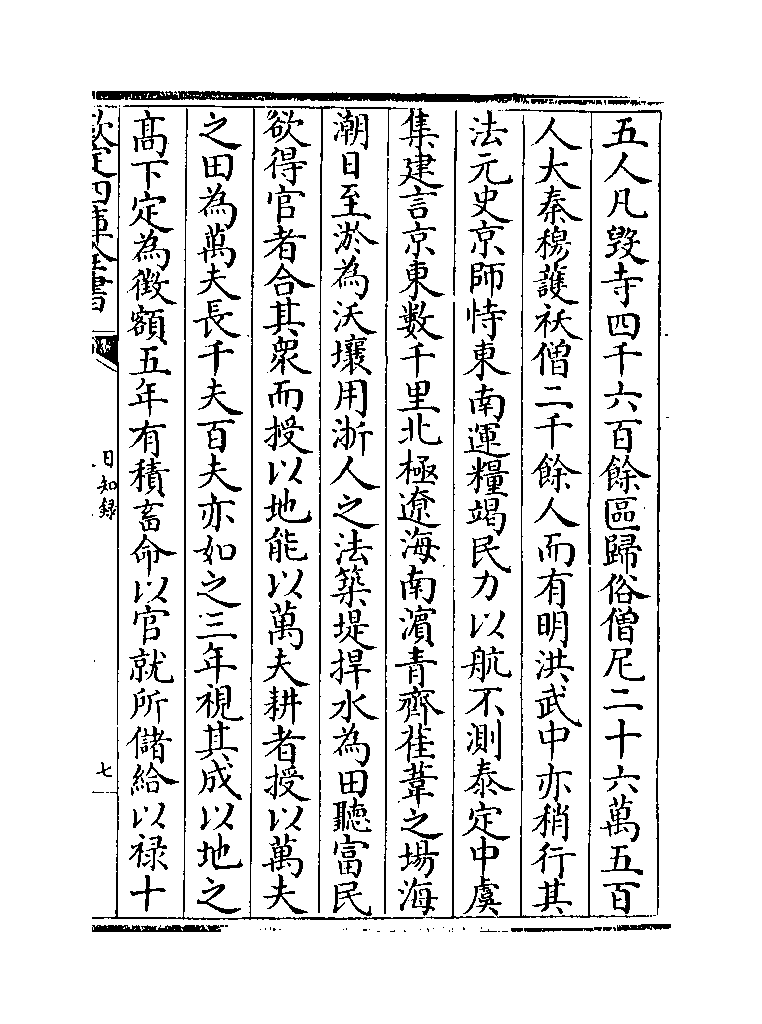 五人凡毀寺四千六百餘區歸俗僧尼二十六萬五百
人大秦穆護祅僧二千餘人而有明洪武中亦稍行其
法元史京師恃東南運糧竭民力以航不測泰定中虞
集建言京東數千里北極遼海南濵青齊萑葦之場海
潮日至淤為沃壤用浙人之法築堤捍水為田聽富民
欲得官者合其衆而授以地能以萬夫耕者授以萬夫
之田為萬夫長千夫百夫亦如之三年視其成以地之
高下定為徵額五年有積畜命以官就所儲給以禄十
欽定四庫全書
日知錄
七